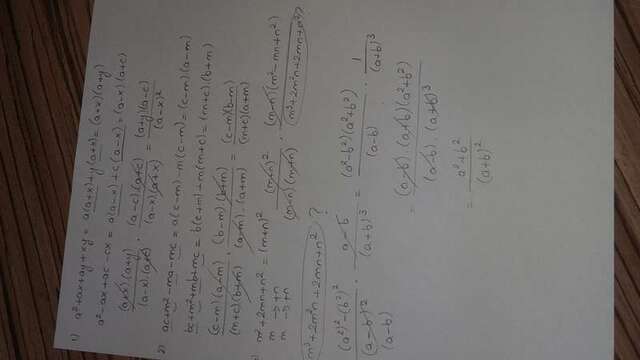 1) a²+ax+ay+xy = a(a+x)+y(a+x) = (a+x)(a+y)
a²-ax+ac-cx = a(a-x)+c(a-x) = (a-x)(a+c)
(a+x)·(a+y) / (a-x)·(a+c) · (a-c)·(a+c) / (a-x)(a+x) = (a+y)(a-c) / (a-x)²
2) ac+m²-ma-mc = a(c-m)-m(c-m) = (c-m)(a-m)
bc+m²+mb+mc = b(c+m)+m(m+c) = (m+c)(b+m)
(c-m)(a-m) / (m+c)(b+m) · (b-m)(b+m) / (a-m)·(a+m) = (c-m)(b-m) / (m+c)(a+m)
m²+2mn+n² = (m+n)²
m → +n
m → +n
(m+n)² / (m-n)(m+n) · (m-n)(m²-mn+n²) / (m²+2m²n+2mn+n²)?
(m²+2m²n+2mn+n²) ?
(a²)²-(b²)² / (a-b)² · a-b / (a+b)³ = (a²-b²)(a²+b²) / (a-b) · 1 / (a+b)³
(a-b)
= (a-b)(a+b)(a²+b²) / (a-b)·(a+b)³
= a²+b² / (a+b)²